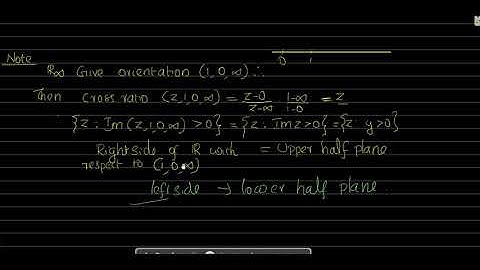 Note
R∞ Give orientation (1,0,∞) ∴
0 1
Then Cross ratio (z,1,0,∞) = z-0/z-∞ 1-∞/1-0 = z
∴ {z : Im(z,1,0,∞) >0} = {z : Imz>0} = {z: y>0}
Right side of R with = Upper half plane
respect to (1,0,∞)
left side → lower half plane.